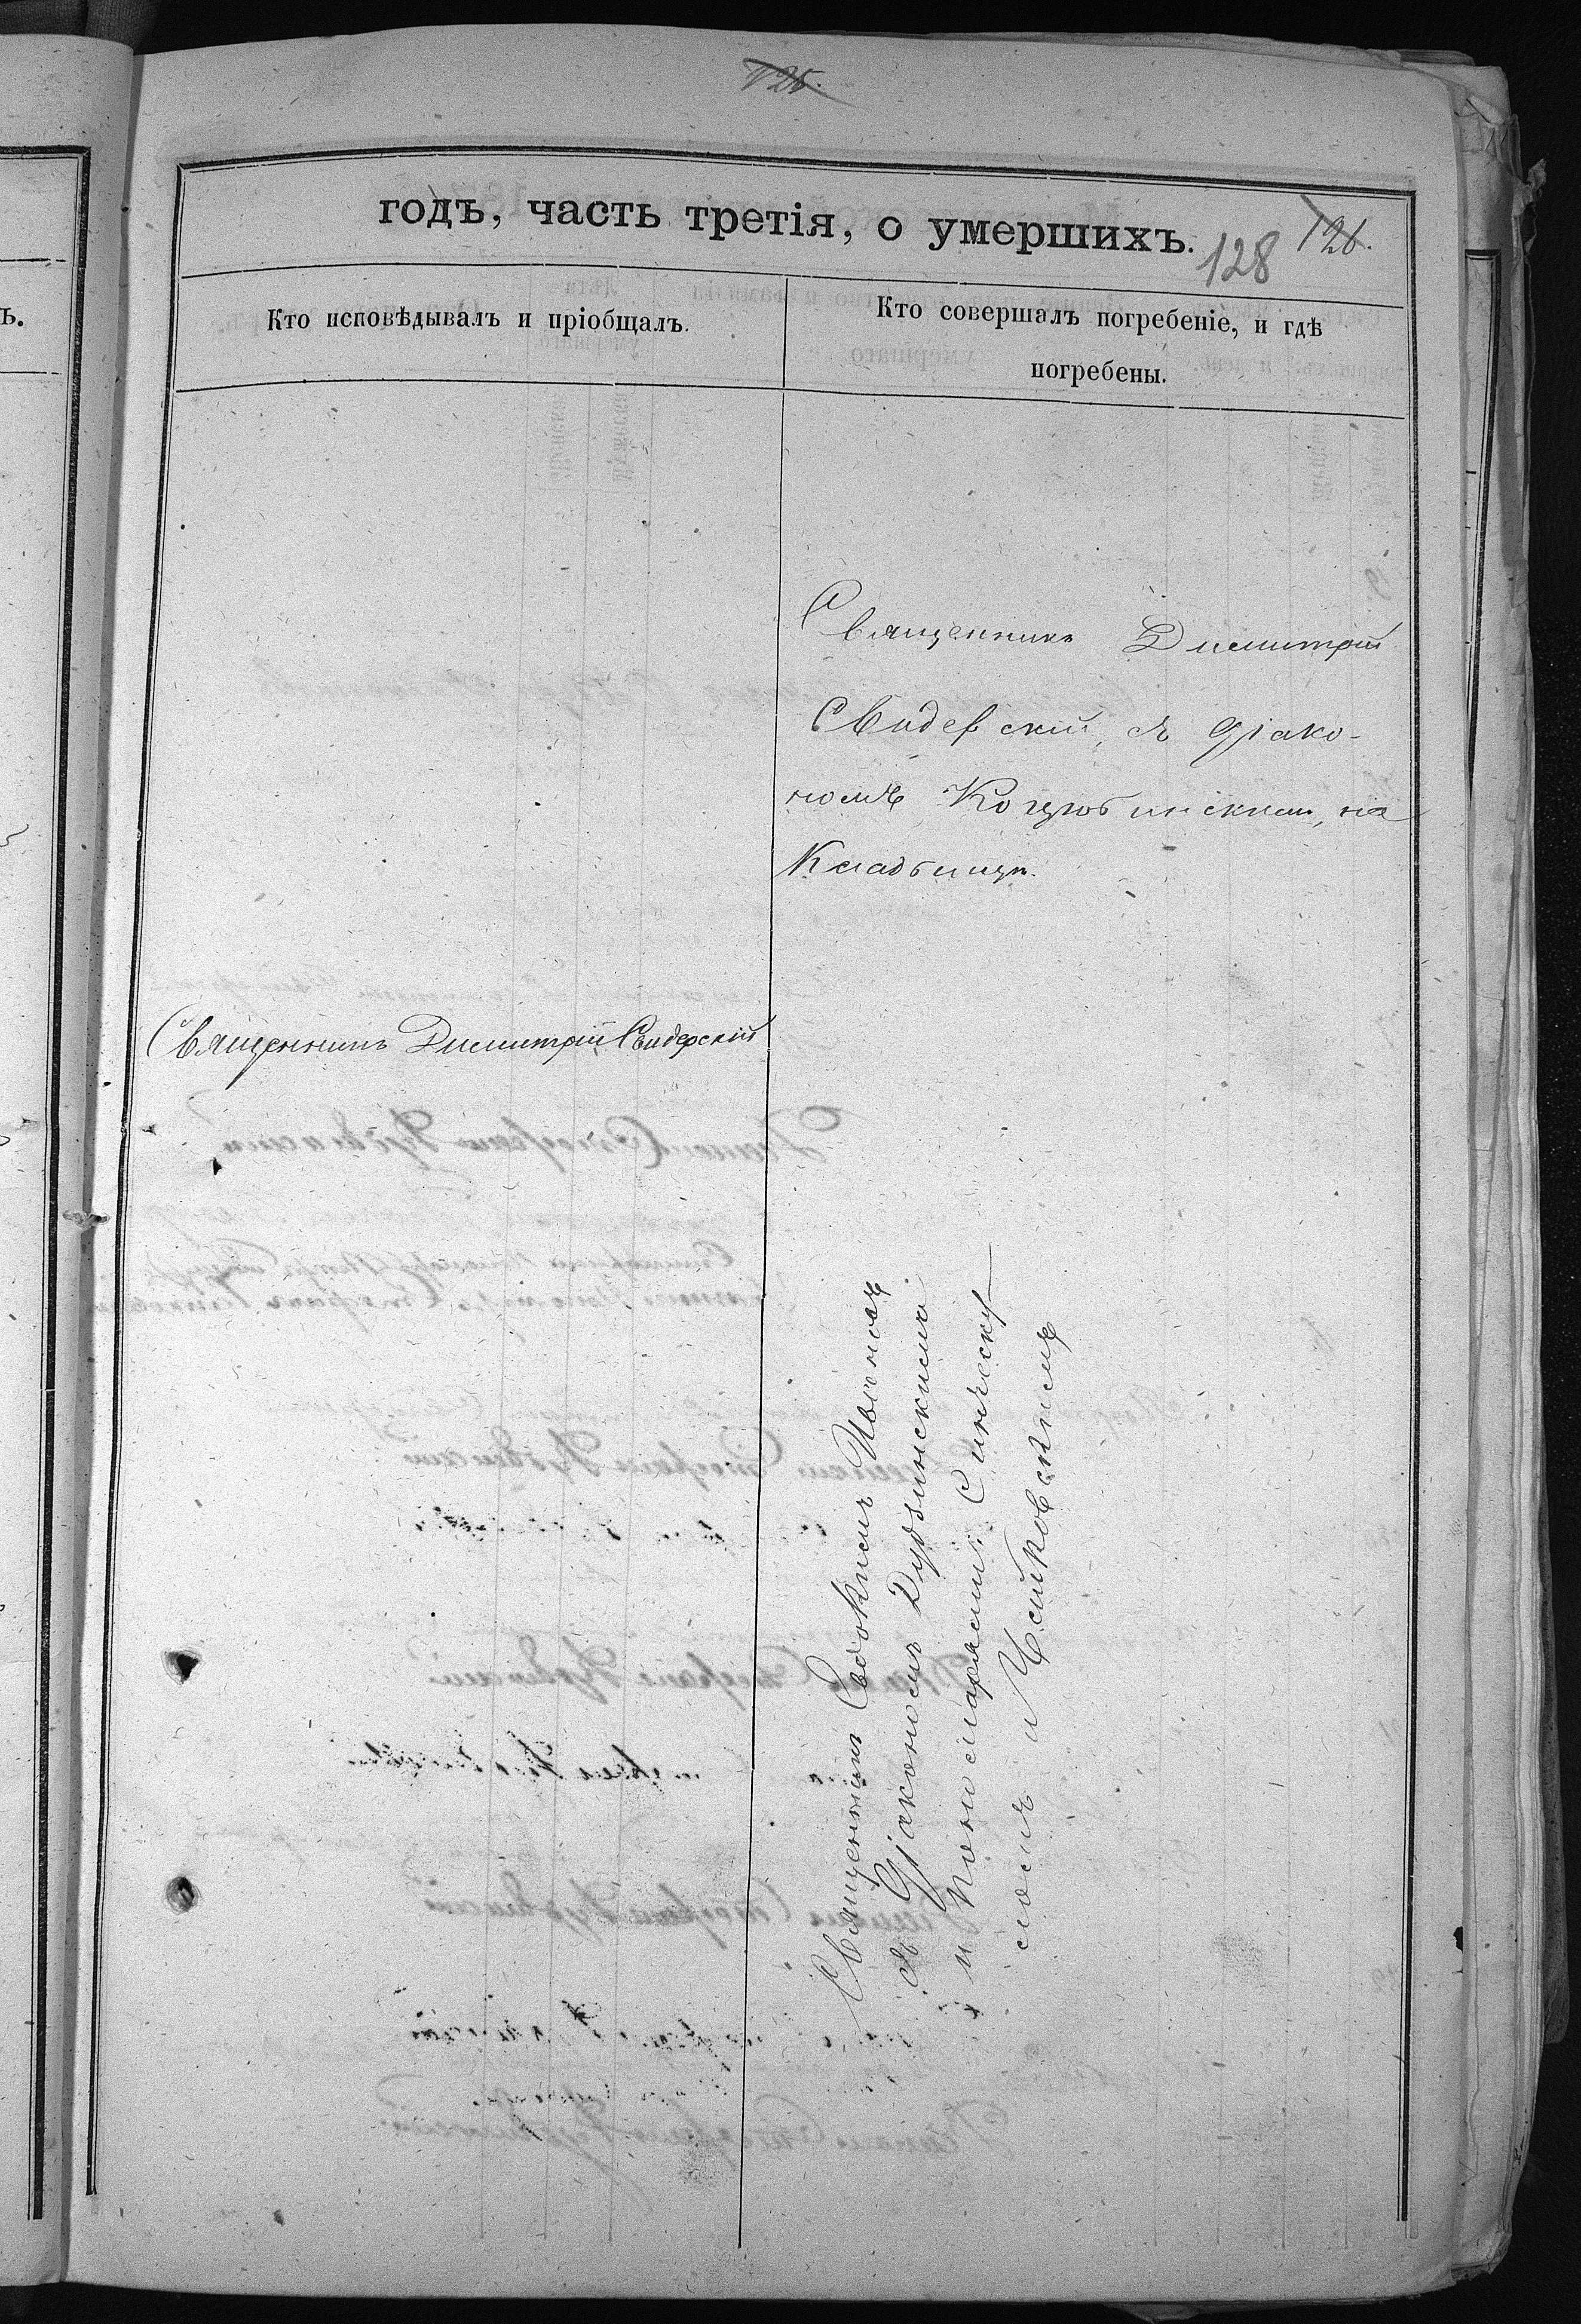 125.
годъ, часть третія, о умершихъ.
128
126.
Кто исповѣдывалъ и пріобщалъ.
Кто совершалъ погребеніе, и гдѣ
погребены.
Священникъ Димитрій
Свидерскій, съ Діако-
номъ Коцюбинскимъ, на
Кладбищѣ.
Священникъ Димитрій Свидерскій
Священникъ Евдокимъ
съ Діакономъ Дудзинскимъ
и пономарями: Синическ
и Чайковскимъ
ъ.